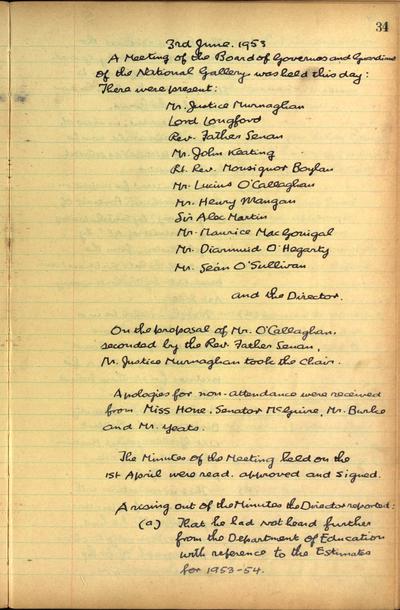 34
3rd June. 1953
A Meeting of the Board of Governors and Guardians
of the National Gallery was held this day:
There were present:
Mr. Justice Murnaghan
Lord Longford
Rev. Father Senan
Mr. John Keating
Rt. Rev. Monsignor Boylan
Mr. Lucius O'Callaghan
Mr. Henry Mangan
Sir Alec Martin
Mr. Maurice MacGonigal
Mr. Diarmuid O'Hegarty
Mr. Seán O'Sullivan
and the Director.
On the proposal of Mr. O'Callaghan,
seconded by the Rev. Father Senan,
Mr. Justice Murnaghan took the Chair.
Apologies for non-attendance were received
from Miss Hone, Senator McGuire, Mr. Burke
and Mr. Yeats.
The Minutes of the Meeting held on the
1st April were read, approved and signed.
Arising out of the Minutes the Director reported:
(a) That he had not heard further
from the Department of Education
with reference to the Estimates
for 1953-54.